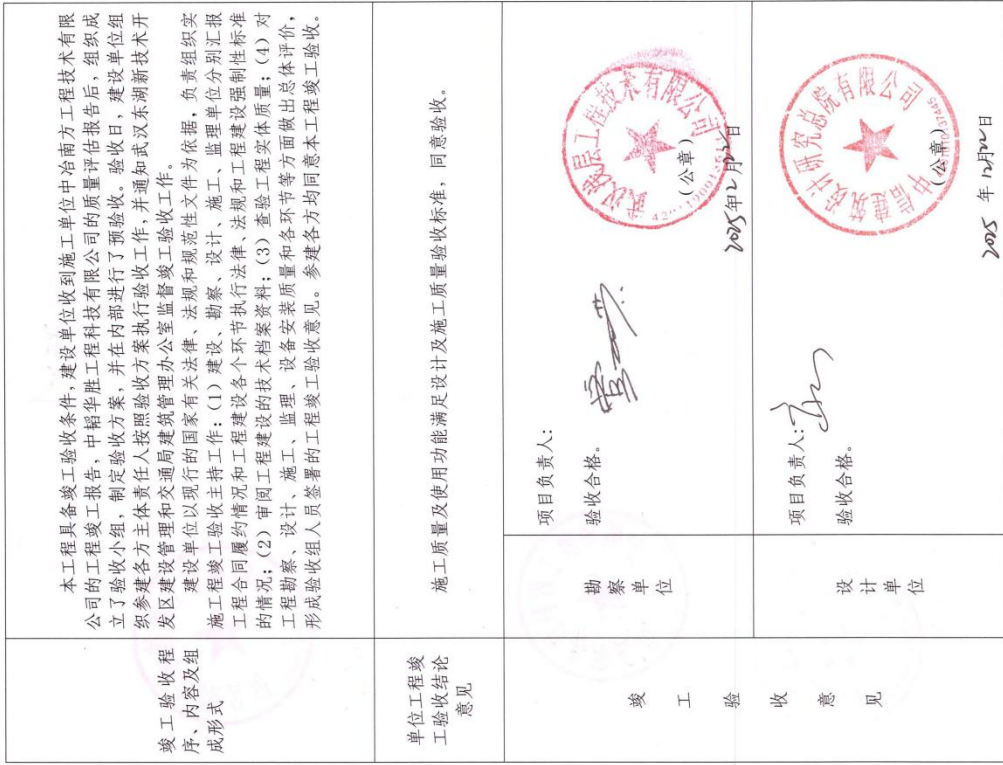 竣工验收程
序、内容及组
成形式
本工程具备竣工验收条件,建设单位收到施工单位中冶南方工程技术有限
公司的工程竣工报告,中韬华胜工程科技有限公司的质量评估报告后,组织成
立了验收小组,制定验收方案,并在内部进行了预验收。验收日,建设单位组
织参建各方主体责任人按照验收方案执行验收工作,并通知武汉东湖新技术开
发区建设管理和交通局建筑管理办公室监督竣工验收工作。
建设单位以现行的国家有关法律、法规和规范性文件为依据,负责组织实
施工程竣工验收主持工作:(1)建设、勘察、设计、施工、监理单位分别汇报
工程合同履约情况和工程建设各个环节执行法律、法规和工程建设强制性标准
的情况;(2)审阅工程建设的技术档案资料;(3)查验工程实体质量;(4)对
工程勘察、设计、施工、监理、设备安装质量和各环节等方面做出总体评价,
形成验收组人员签署的工程竣工验收意见。参建各方均同意本工程竣工验收。
单位工程竣
工验收结论
意见
施工质量及使用功能满足设计及施工质量验收标准,同意验收。
竣工验收意见
勘察单位
项目负责人:
验收合格。
工程技术有限公司
(公章)
2025年12月22日
设计单位
项目负责人:
验收合格。
中信建筑设计研究总院有限公司
(公章)
2025 年 12月22日